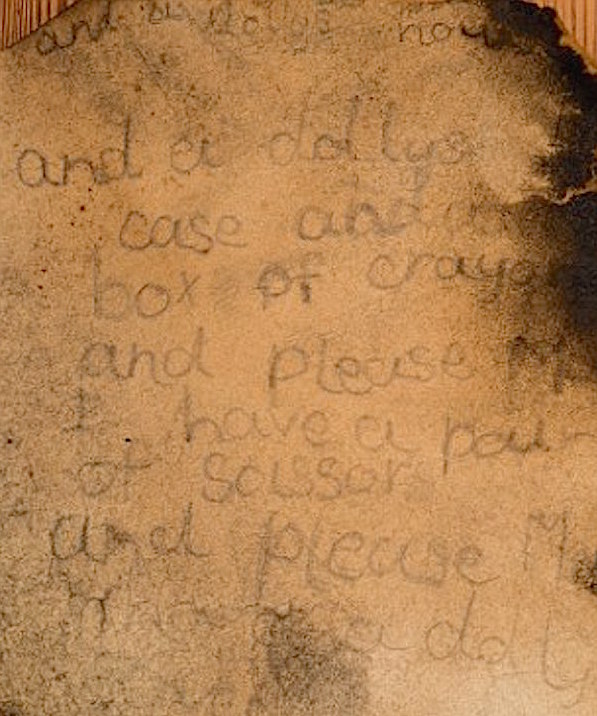 and dollys
and a dollys
case and
box of crayo
and please M
I have a pair
of scissors
and please M
have a dolly